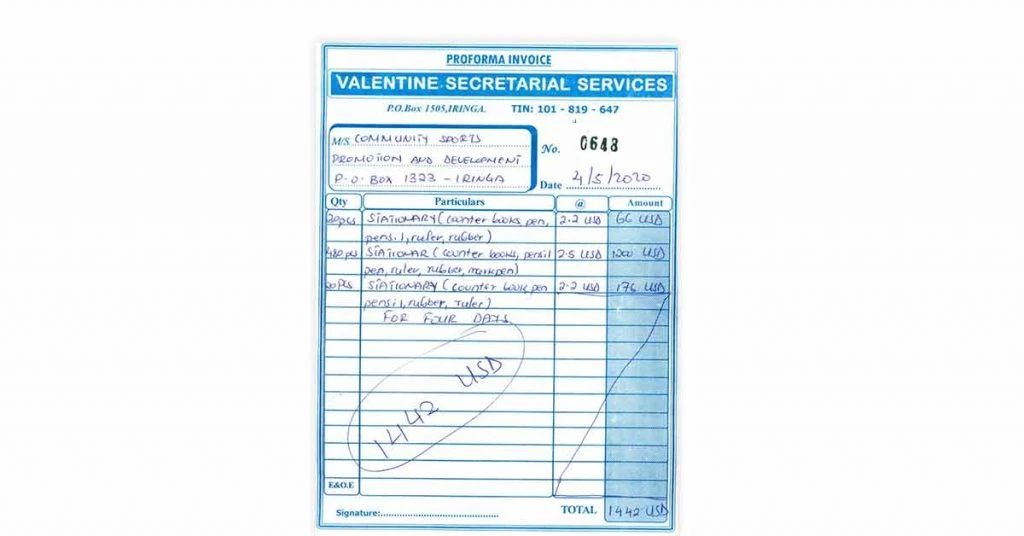 PROFORMA INVOICE
VALENTINE SECRETARIAL SERVICES
P.O.Box 1505,IRINGA. TIN: 101 - 819 - 647
M/S COMMUNITY SPORTS
PROMOTION AND DEVELOPMENT
P.O. BOX 1323 - IRINGA
No. 0648
Date 4/5/2020
Qty Particulars @ Amount
pcs STATIONARY (counter books, pen, 2.2 USD 66 USD
pensil, ruler, rubber)
480 pcs STATIONAR (counter books, pensil 2.5 USD 1200 USD
pen, ruler, rubber, markpen)
20 pcs STATIONARY (counter book pen 2.2 USD 176 USD
pensil, rubber, ruler)
FOR FOUR DAYS
1442 USD
E&O.E
Signature: TOTAL 1442 USD